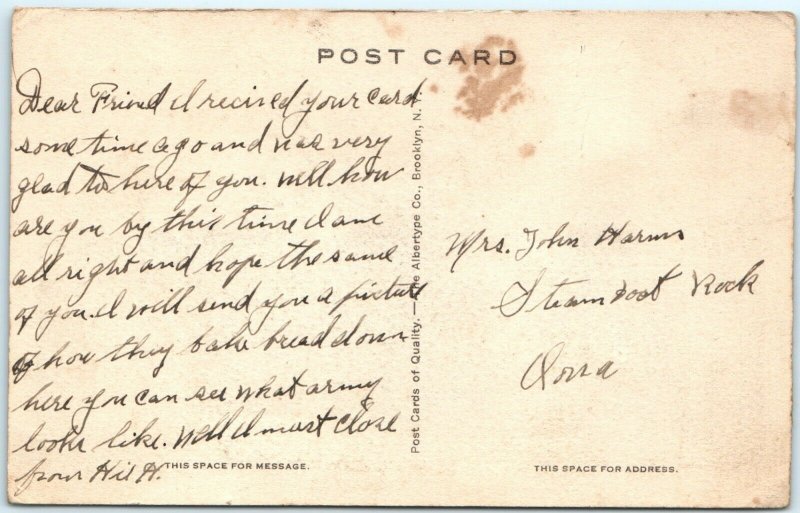 POST CARD
Dear Friend I recived your card
some time ago and was very
glad to here of you. Well how
are you by this time I am
all right and hope the same
of you. I will send you a picture
of how they bake bread down
here you can see what army
looks like. Well I must close
from H.
THIS SPACE FOR MESSAGE.
Post Cards of Quality. — The Albertype Co., Brooklyn, N. Y.
Mrs. John Harms
Steamboat Rock
Iowa
THIS SPACE FOR ADDRESS.